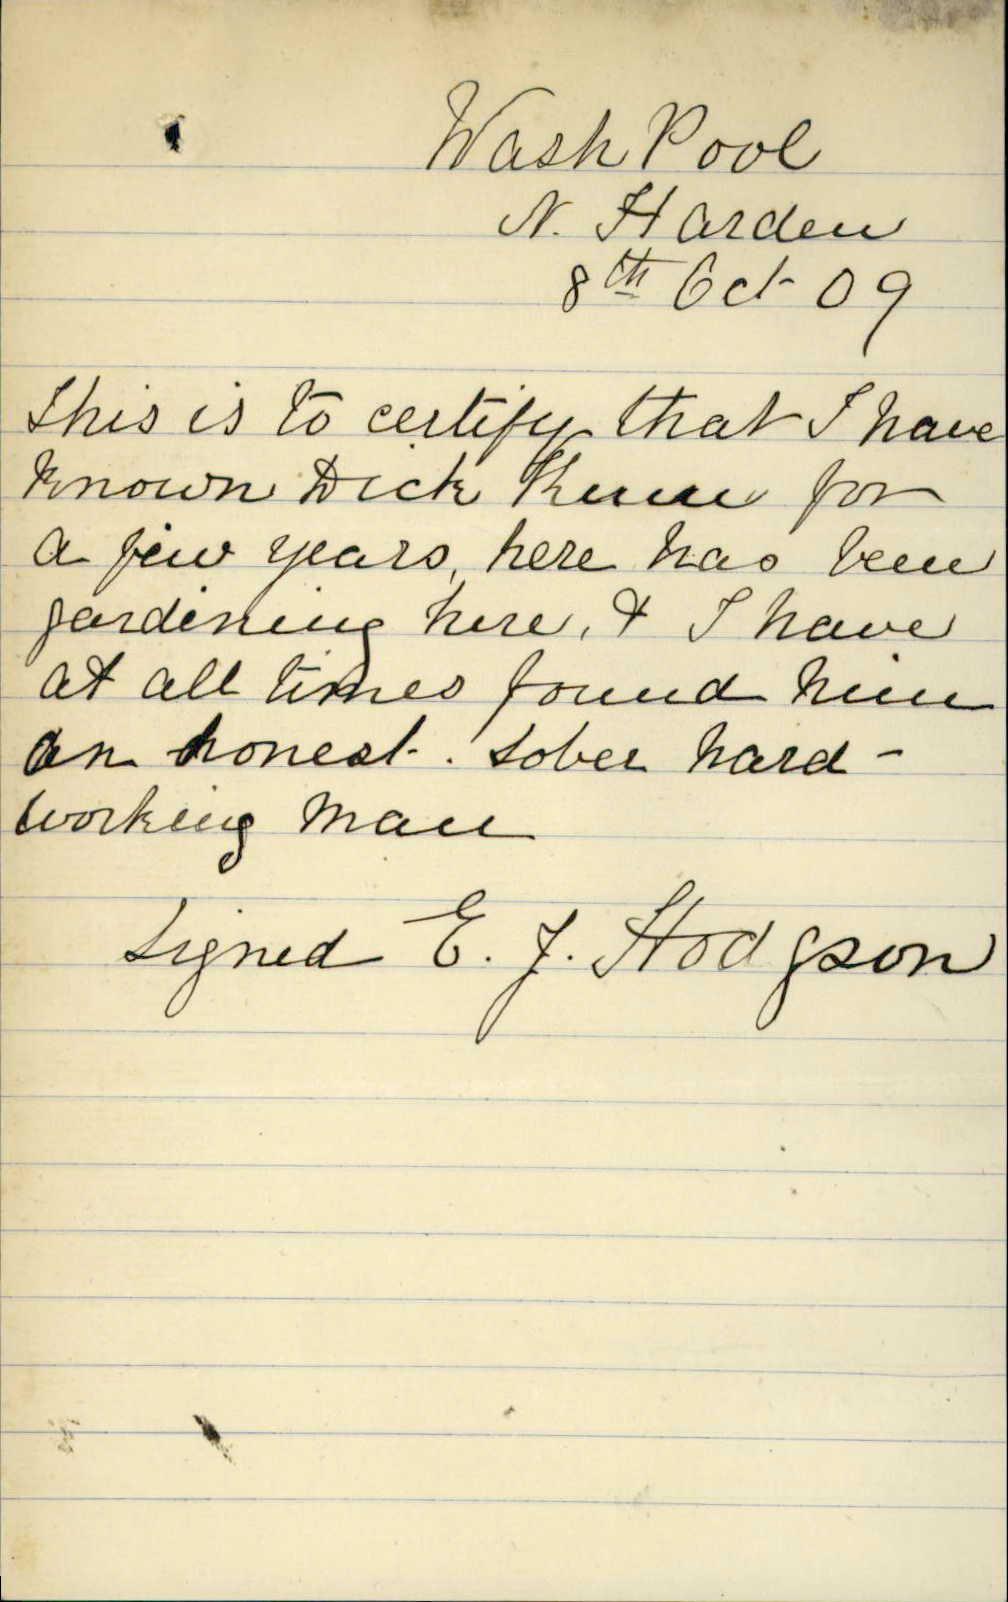 Wash Pool
N. Harden
8th Oct 09
This is to certify that I have
known Dick for
a few years, here has been
gardening here, & I have
at all times found him
an honest. sober hard-
working man
Signed E. J. Hodgson